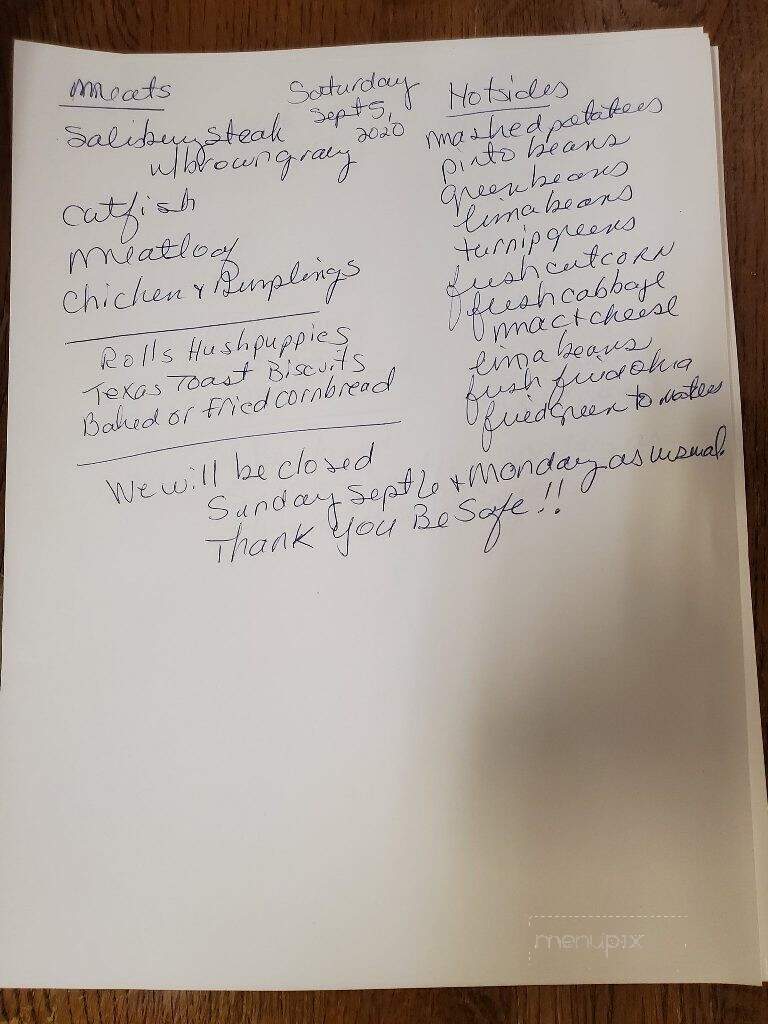 Meats
Saturday
Sept 5,
2020
Salisbury Steak
w/brown gravy
Catfish
Meatloaf
Chicken & Dumplings
Rolls Hushpuppies
Texas Toast Biscuits
Baked or Fried cornbread
Hotsides
mashed potatoes
pinto beans
green beans
lima beans
turnip greens
fresh cut corn
fresh cabbage
mac + cheese
lima beans
fresh fried okra
fried green tomatoes
We will be closed
Sunday Sept 6 + Monday as usual.
Thank You Be Safe!!
menupix